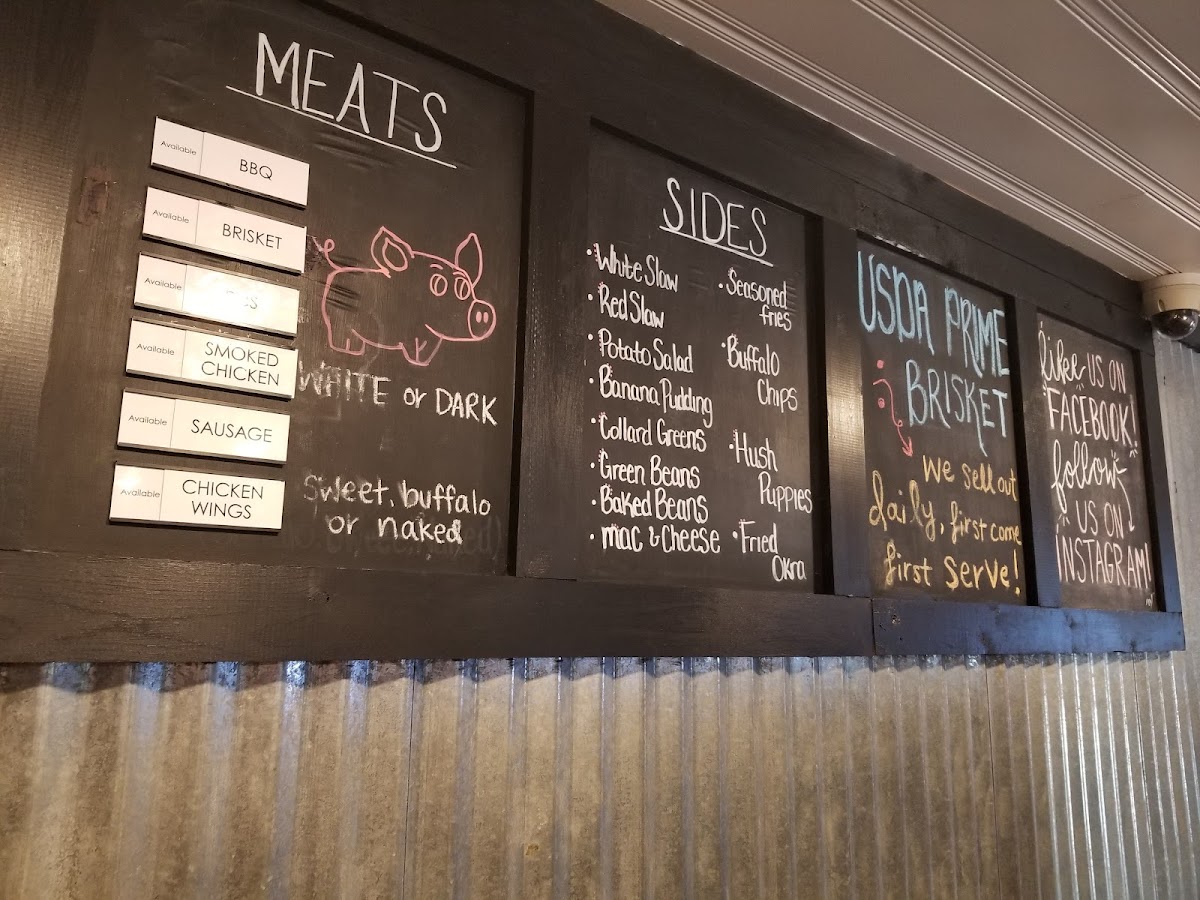 MEATS
Available BBQ
Available BRISKET
Available
Available SMOKED
CHICKEN
WHITE or DARK
Available SAUSAGE
Available CHICKEN
WINGS
Sweet, buffalo
or naked
SIDES
• White Slaw
• Red Slaw
• Potato Salad
• Banana Pudding
• Collard Greens
• Green Beans
• Baked Beans
• mac & Cheese
• Seasoned
fries
• Buffalo
Chips
• Hush
Puppies
• Fried
Okra
USDA PRIME
BRISKET
We sell out
daily, first come
first serve!
like US ON
FACEBOOK!
follow
US ON
INSTAGRAM!